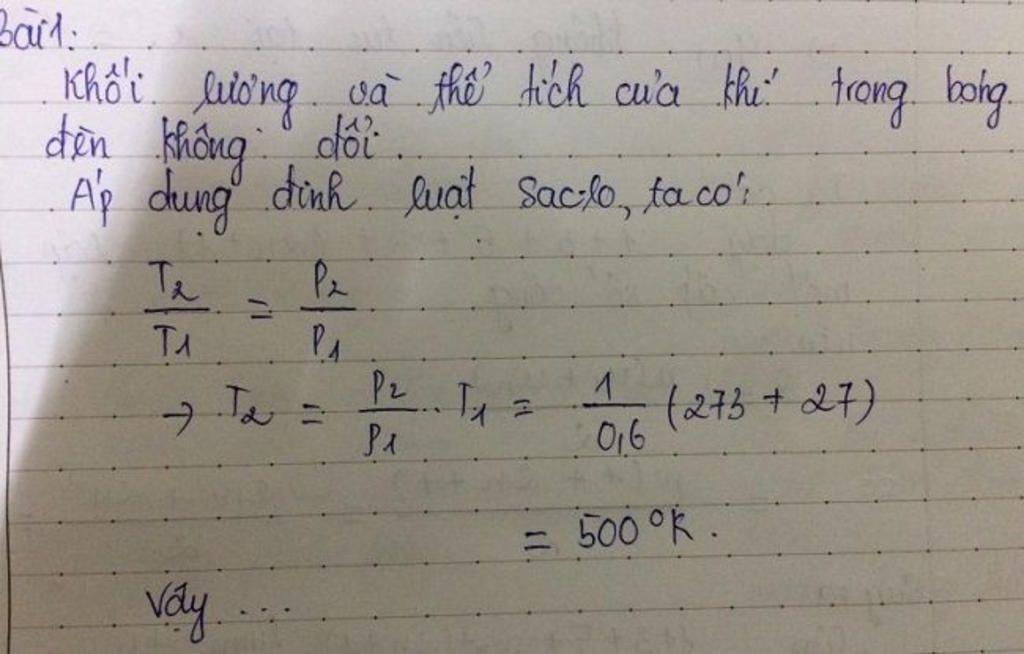 Bài 1:
Khối lượng và thể tích của khí trong bóng
đèn không đổi.
Áp dụng định luật Sac-lơ, ta có:
T2/T1 = P2/P1
→ T2 = P2/P1 . T1 = 1/0,6 (273 + 27)
= 500°K.
Vậy ...